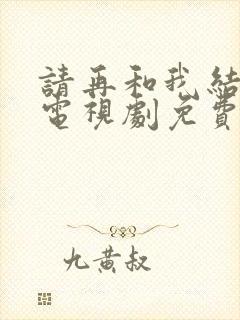 請再和我結
電視劇免費
九黃叔